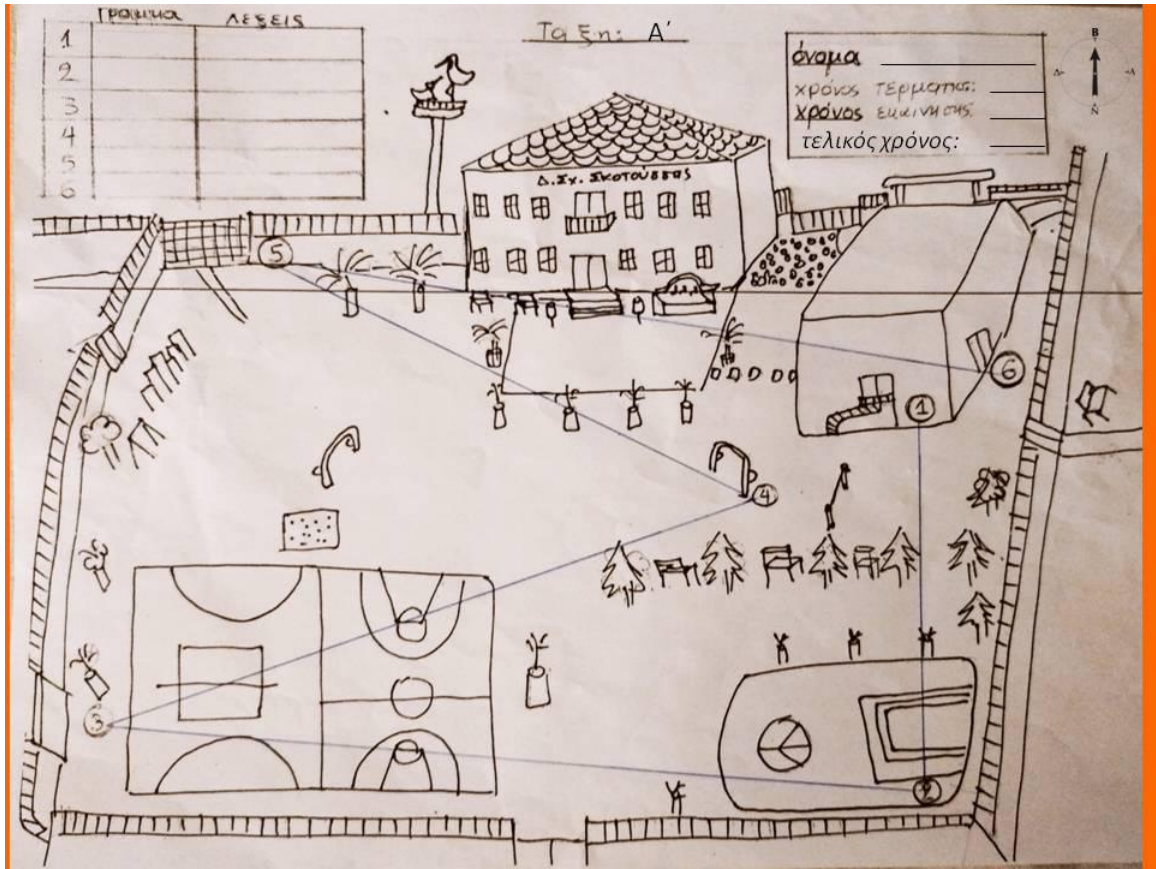 Γραμμα ΛΕΞΕΙΣ
1
2
3
4
5
6
Ταξη: Α΄
όνομα
χρόνος τερματισ:
χρόνος εκκίνησης:
τελικός χρόνος:
Β
Ν
Δ. Σχ. ΣΚΟΤΟΥΣΣΗΣ
5
6
1
4
3
2